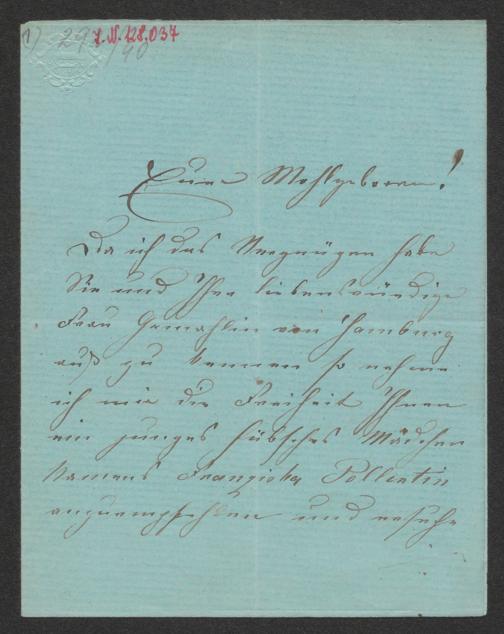 1) 29
I.N. 128.037
/90
Euer Wohlgeboren!
Da ich das Vergnügen habe
Sie und Ihre liebenswürdige
Frau Gemahlin von Hamburg
auß zu kennen so nehme
ich mir die Freiheit Ihnen
ein junges hübsches Mädchen
Namens Franziska Pollentin
anzuempfehlen und ersuche